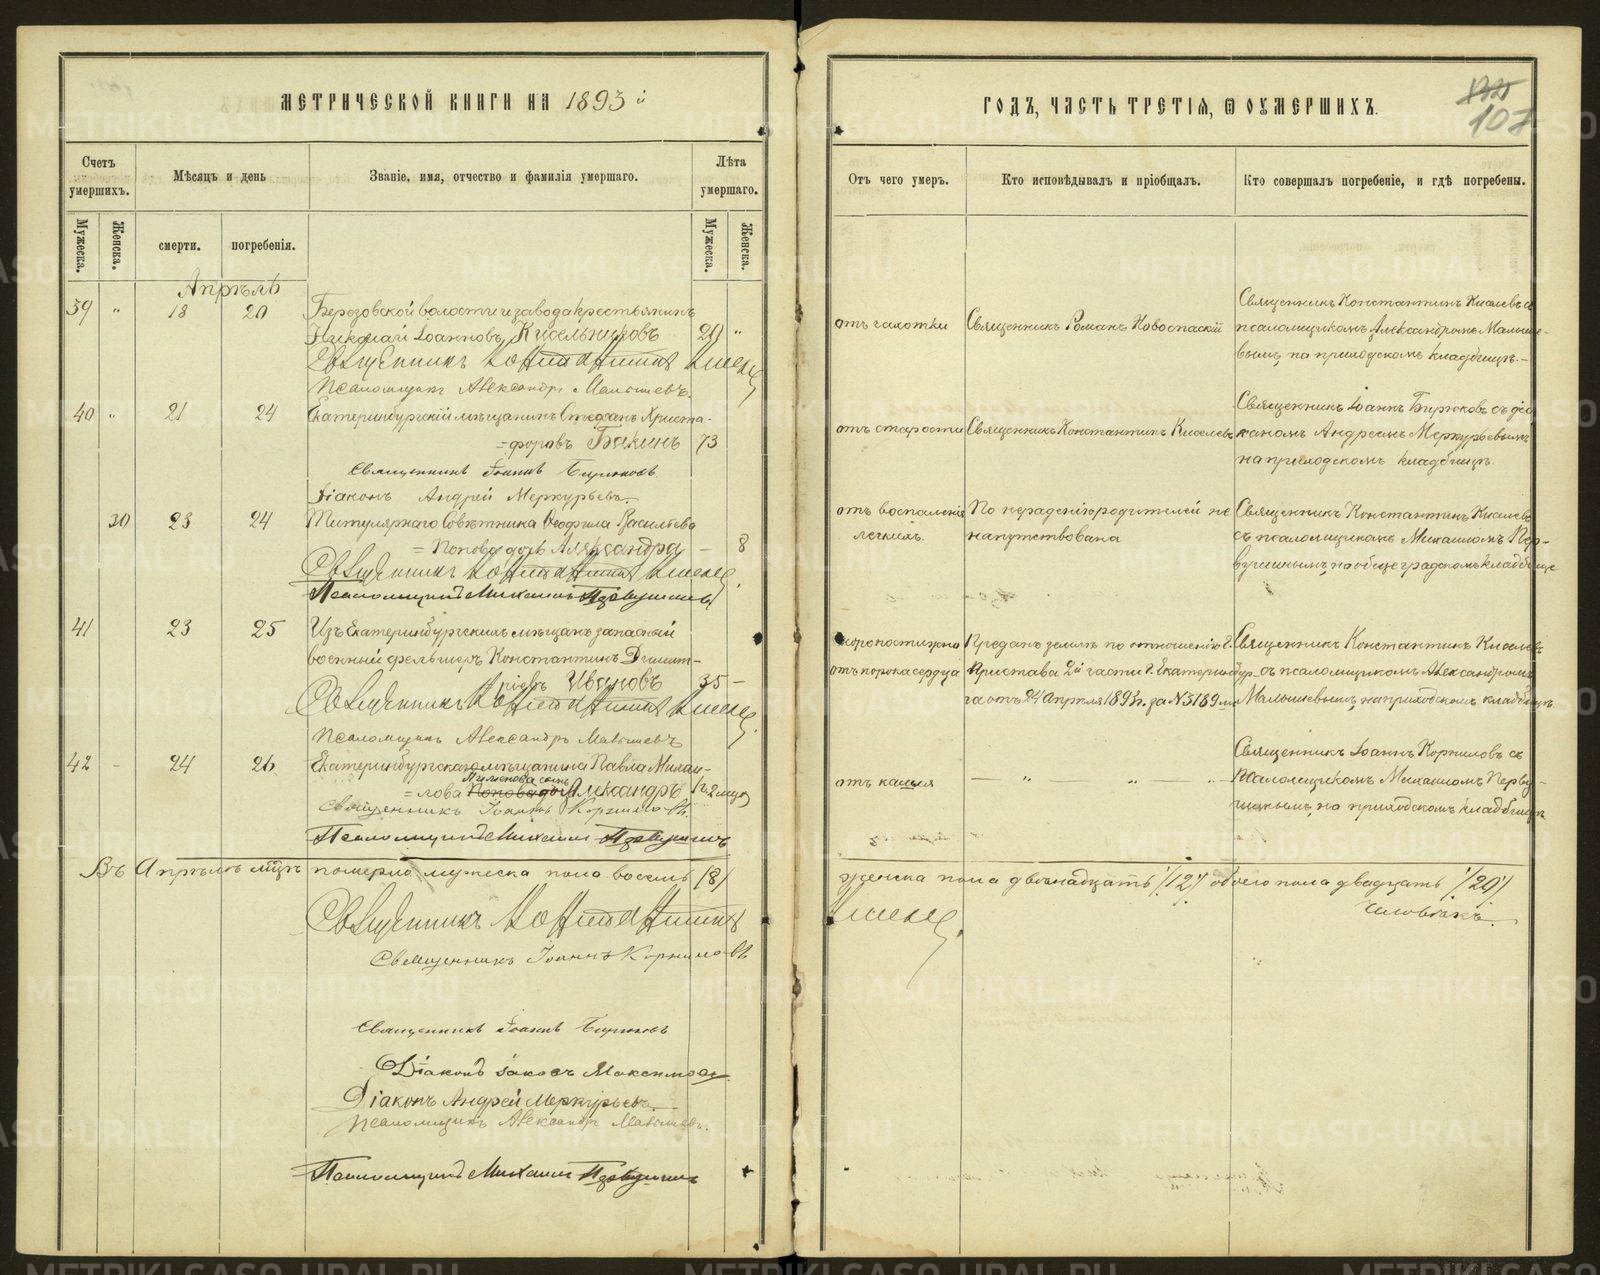 МЕТРИЧЕСКОЙ КНИГИ НА 1893 й
ГОДЪ, ЧАСТЬ ТРЕТІЯ, Ѿ ОУМЕРШИХЪ.
107
Счетъ умершихъ.
Мѣсяцъ и день
Званіе, имя, отчество и фамилія умершаго.
Лѣта умершаго.
Отъ чего умеръ.
Кто исповѣдывалъ и пріобщалъ.
Кто совершалъ погребеніе, и гдѣ погребены.
Мужеска.
Женска.
смерти.
погребенія.
Мужеска.
Женска.
Апрѣль
39 " 18 20 Березовской волости и завода крестьянинъ
Іоанновъ Кисельниковъ 20 "
отъ чахотки
Священникъ Романъ Новоспаскій
Священникъ Константинъ Киселевъ съ
псаломщикомъ Александромъ Малыше-
вымъ, на приходскомъ кладбищѣ.
Священникъ Константинъ Киселевъ
Псаломщикъ Александръ Малышевъ.
40 " 21 24 Екатеринбургскій мѣщанинъ Стефанъ Христо-
=форовъ Бакинъ 73
отъ старости
Священникъ Константинъ Киселевъ
Священникъ Іоаннъ Бирюковъ съ діа
кономъ Андреемъ Меркурьевымъ
на приходскомъ кладбищѣ.
Священникъ Іоаннъ Бирюковъ
Діаконъ Андрей Меркурьевъ.
30 23 24 Титулярнаго Совѣтника Феофила Васильева
=Попова дочь Александра – 8
отъ воспаленія
легкихъ.
По нераденію родителей не
напутствована
Священникъ Константинъ Киселевъ
съ псаломщикомъ Михаиломъ Пер-
вушинымъ, на общеградскомъ кладбище
Священникъ Константинъ Киселевъ
Псаломщикъ Михаилъ Первушинъ
41 23 25 Изъ Екатеринбургскихъ мѣщанъ запасный
военный фельшеръ Константинъ Димит-
ріевъ Ивановъ 35 –
скоропостижно
отъ порока сердца
Преданъ землѣ по отношенію Г.
Пристава 2й части г. Екатеринбур-
га отъ 24 Апрѣля 1893 г. за № 3189
Священникъ Константинъ Киселевъ
съ псаломщикомъ Александромъ
Малышевымъ, на приходскомъ кладбищѣ
Священникъ Константинъ Киселевъ
Псаломщикъ Александръ Малышевъ
42 – 24 26 Екатеринбургскаго мѣщанина Павла Михаи-
Пименова сынъ
=лова Попова Александръ 1 г. 2 мѣс
отъ кашля
— " " — " —
Священникъ Іоаннъ Корниловъ съ
Псаломщикомъ Михаиломъ Перву-
шинымъ, на приходскомъ кладбищѣ
Священникъ Іоаннъ Корниловъ.
Псаломщикъ Михаилъ Первушинъ
Въ Апрѣлѣ мѣсяцѣ померло мужеска пола восемь /8/
женска пола двѣнадцать /12/ обоего пола двадцать /20/
человѣкъ.
Священникъ Константинъ Киселевъ
Священникъ Іоаннъ Корниловъ
Священникъ Іоаннъ Бирюковъ
Діаконъ Іаковъ Максимовъ
Діаконъ Андрей Меркурьевъ
Псаломщикъ Александръ Малышевъ.
Псаломщикъ Михаилъ Первушинъ
METRIKI.GASO-URAL.RU